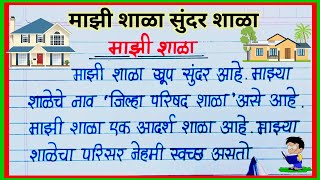 माझी शाळा सुंदर शाळा
माझी शाळा
माझी शाळा खूप सुंदर आहे. माझ्या
शाळेचे नाव 'जिल्हा परिषद शाळा' असे आहे.
माझी शाळा एक आदर्श शाळा आहे. माझ्या
शाळेचा परिसर नेहमी स्वच्छ असतो.